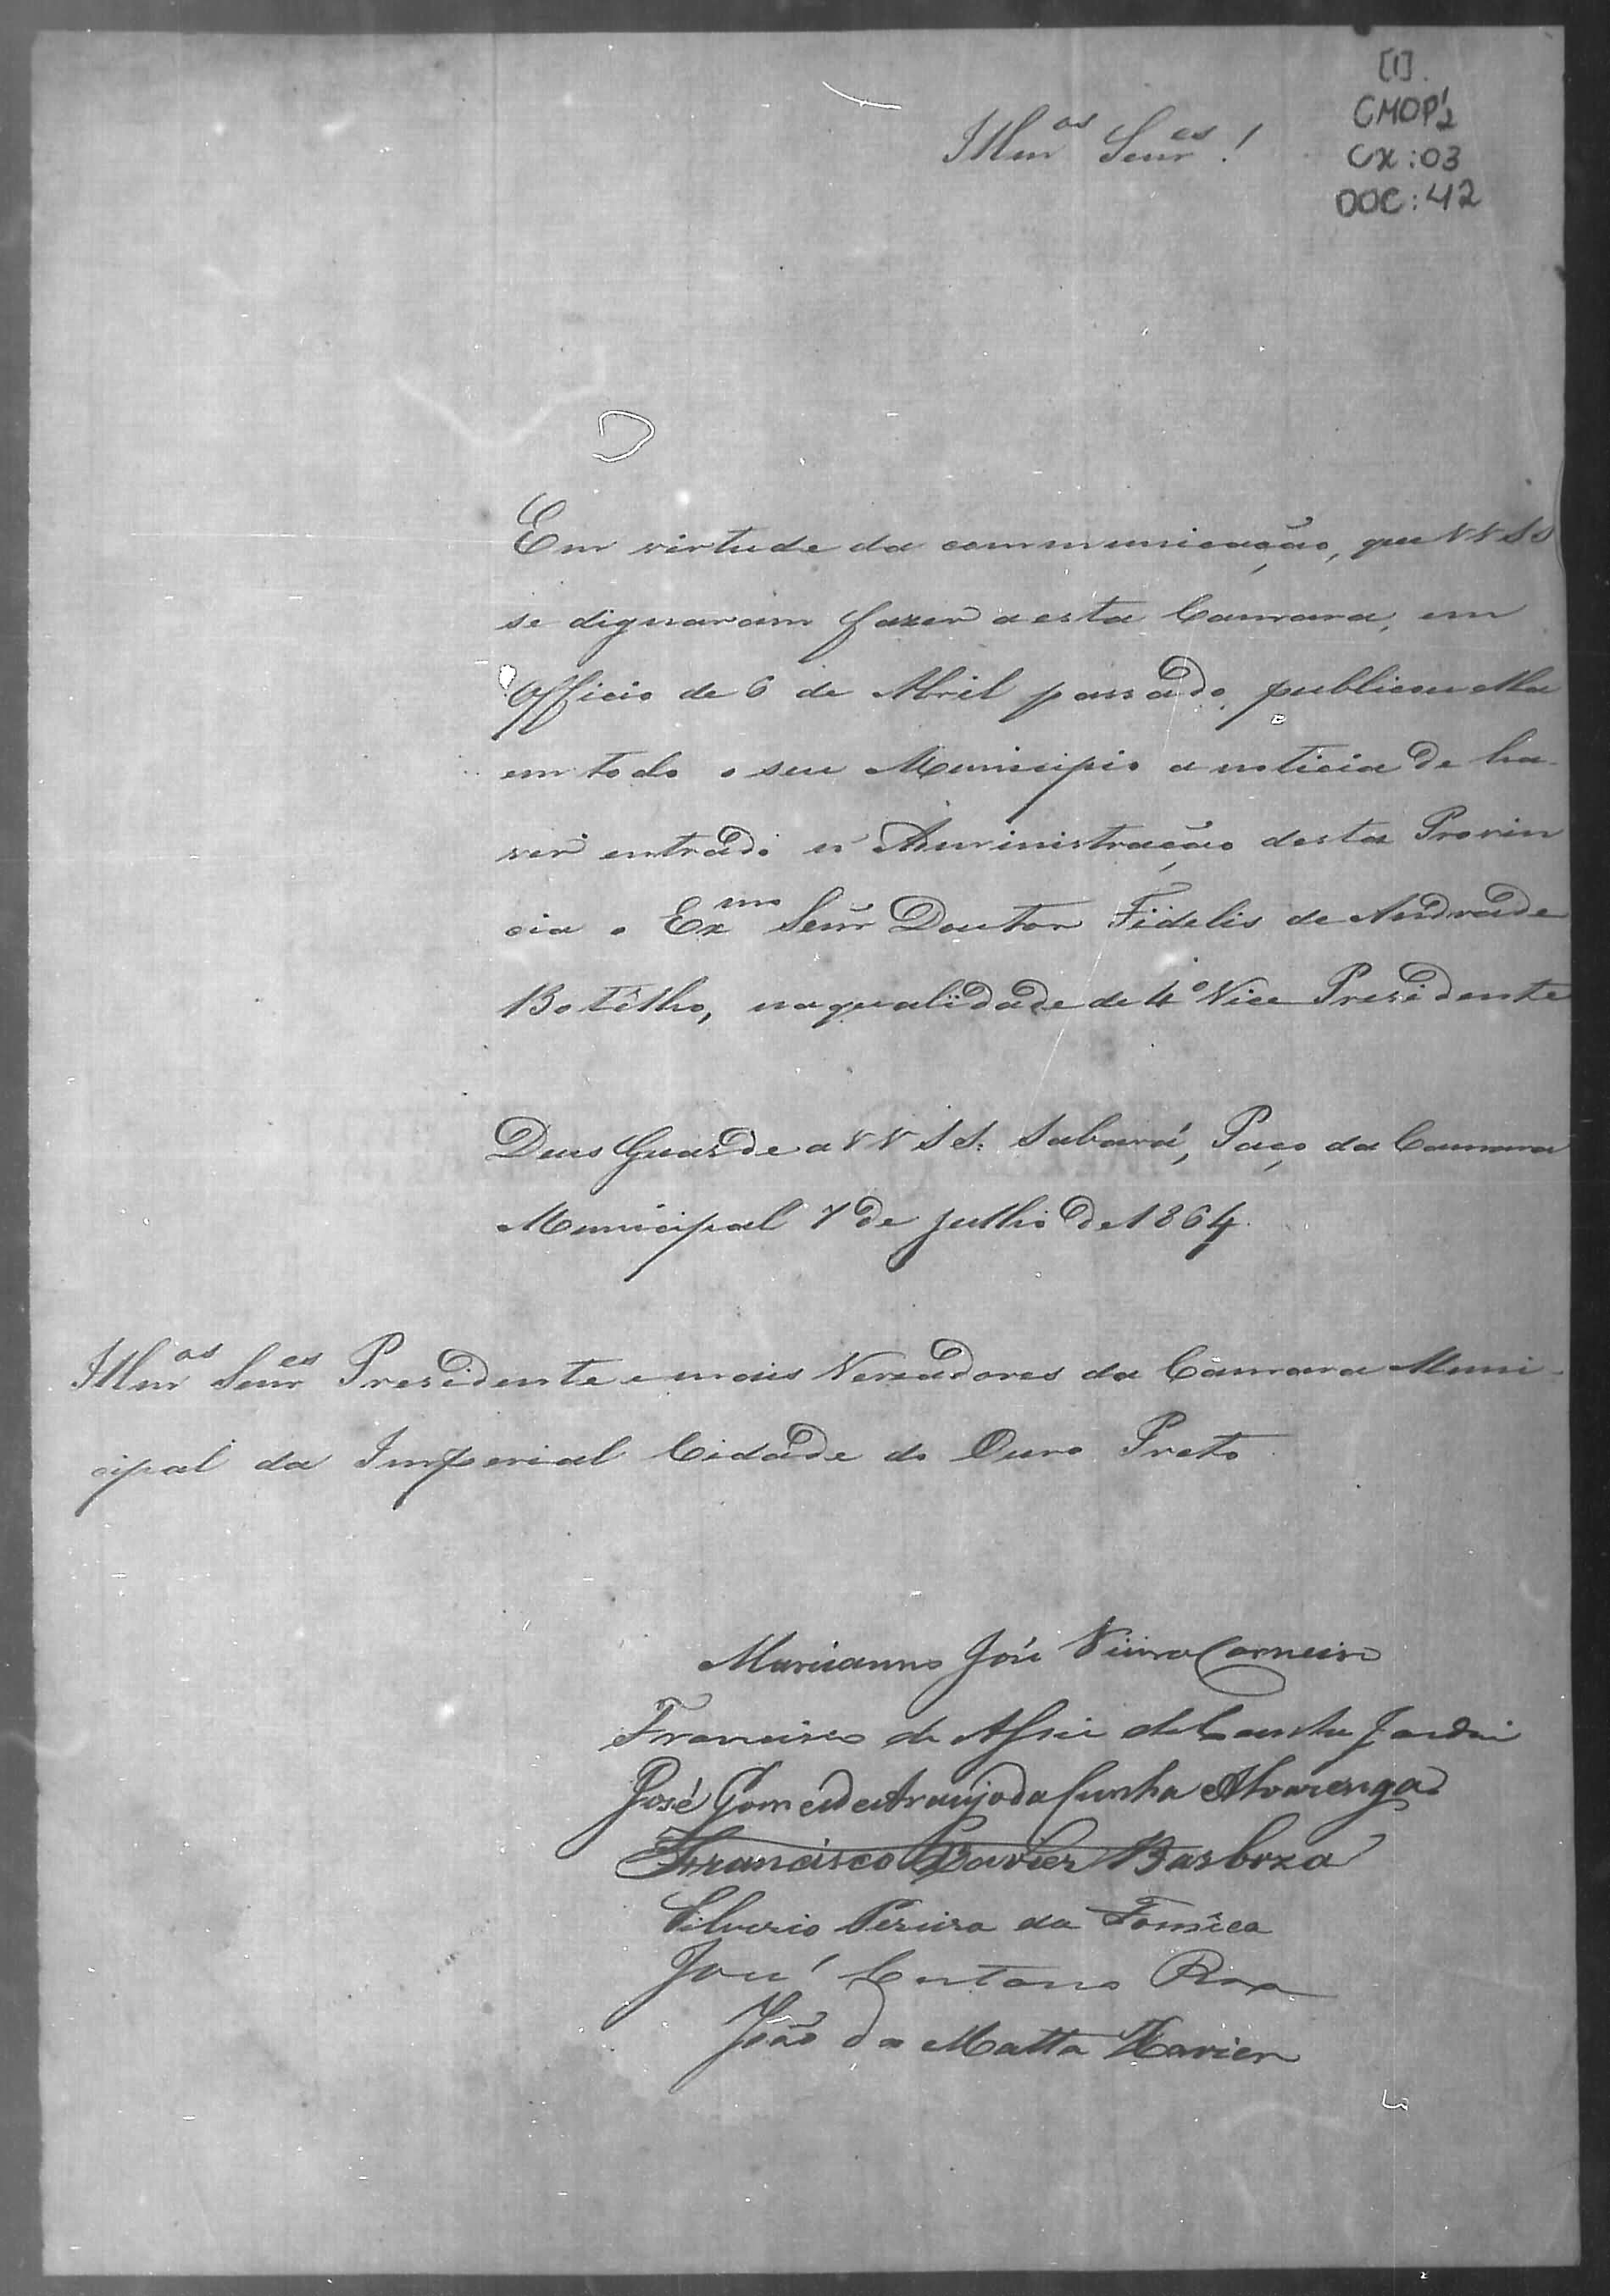 [1]
CMOP 1/2
CX: 03
DOC: 42
Illmos Senres!
Em virtude da communicação, que VVSS
se dignaram fazer a esta Camara, em
Officio de 6 de Abril passado, publicou Ella
em todo o seu Municipio a noticia de ha-
ver entrado n'Administração desta Provin
cia o Exmo Senr Doutor Fidelis de Andrade
Botêlho, na qualidade de 4º Vice Presidente
Deus Guarde a VVSS. Sabará, Paço da Camara
Municipal 7 de Julho de 1864.
Illmos Senres Presidente e mais Vereadores da Camara Muni-
cipal da Imperial Cidade do Ouro Preto
Marianno José Vieira Carneiro
Francisco de Assis da Cunha Jardim
José Gomes de Araujo da Cunha Alvarenga
Francisco Xavier Barboza
Silverio Pereira da Fonsêca
José Caetano
João da Matta Xavier